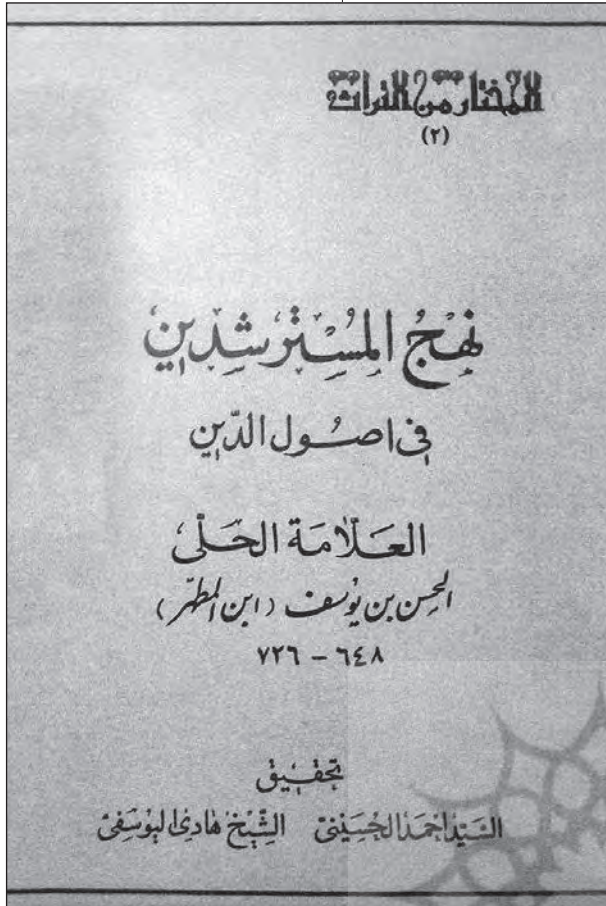 المختار من التراث
(٢)
نهج المسترشدين
في اصول الدين
العلامة الحلي
الحسن بن يوسف (ابن المطهر)
٦٤٨ – ٧٢٦
تحقيق
السيد احمد الحسيني الشيخ هادي اليوسفي